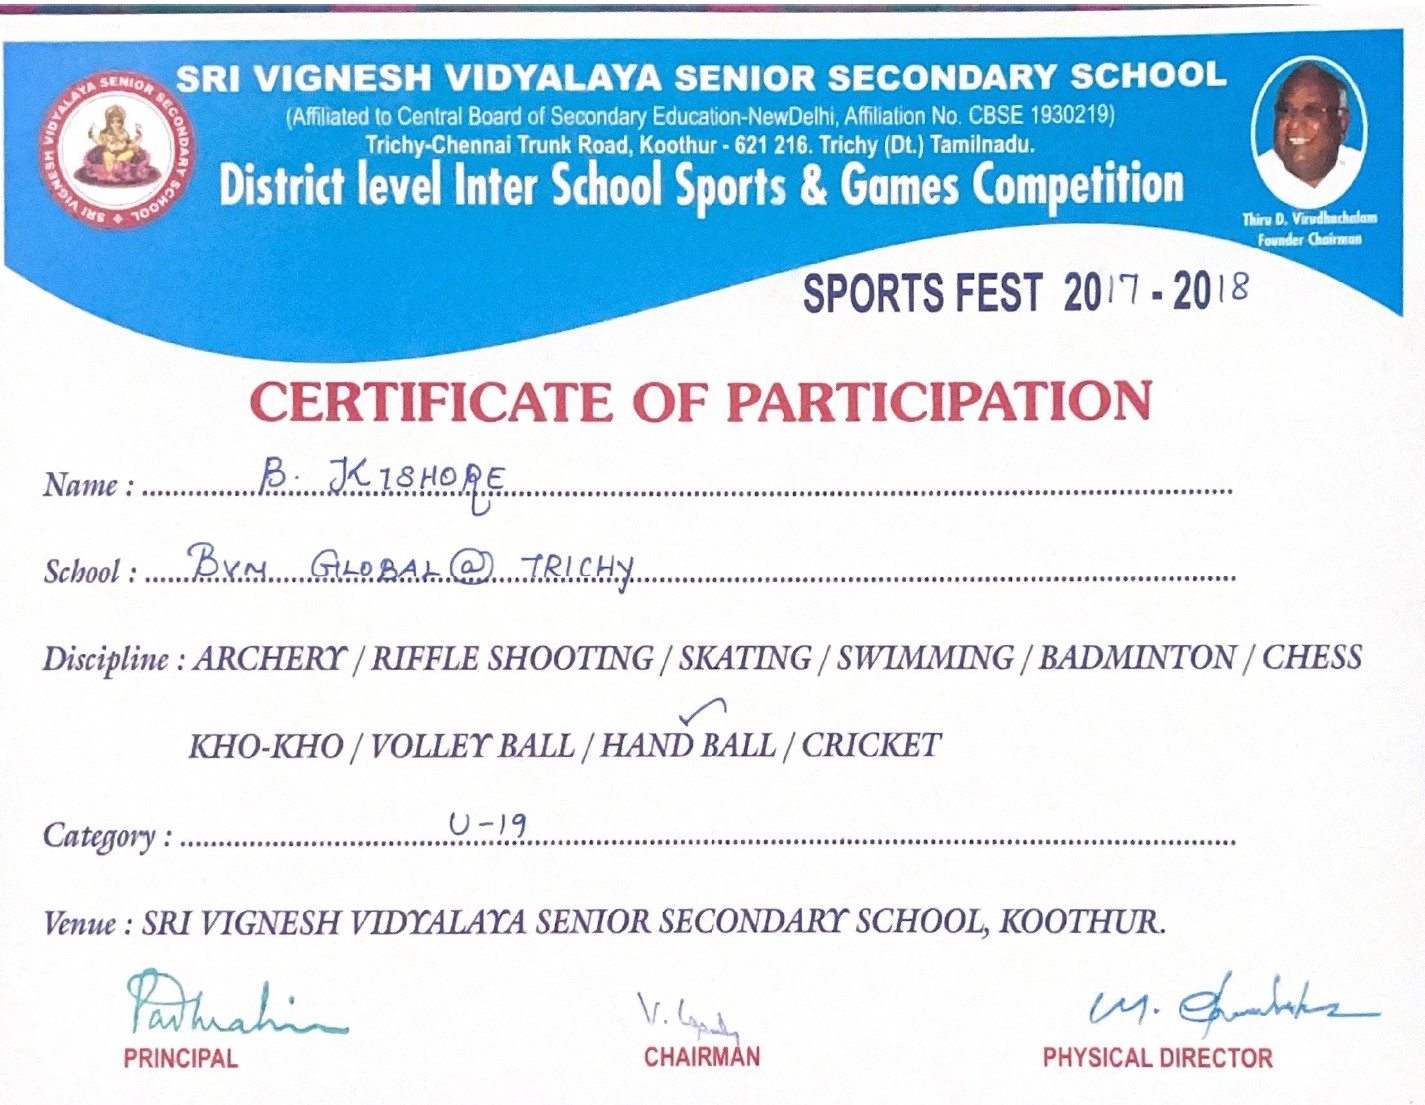 SRI VIGNESH VIDYALAYA SENIOR SECONDARY SCHOOL
SRI VIGNESH VIDYALAYA SENIOR SECONDARY SCHOOL
(Affiliated to Central Board of Secondary Education-NewDelhi, Affiliation No. CBSE 1930219)
Trichy-Chennai Trunk Road, Koothur - 621 216. Trichy (Dt.) Tamilnadu.
District level Inter School Sports & Games Competition
Thiru D. Virudhachalam
Founder Chairman
SPORTS FEST 2017 - 2018
CERTIFICATE OF PARTICIPATION
Name : B. KISHORE
School : BVM GLOBAL @ TRICHY
Discipline : ARCHERY / RIFFLE SHOOTING / SKATING / SWIMMING / BADMINTON / CHESS
KHO-KHO / VOLLEY BALL / HAND BALL / CRICKET
Category : U-19
Venue : SRI VIGNESH VIDYALAYA SENIOR SECONDARY SCHOOL, KOOTHUR.
PRINCIPAL
CHAIRMAN
PHYSICAL DIRECTOR